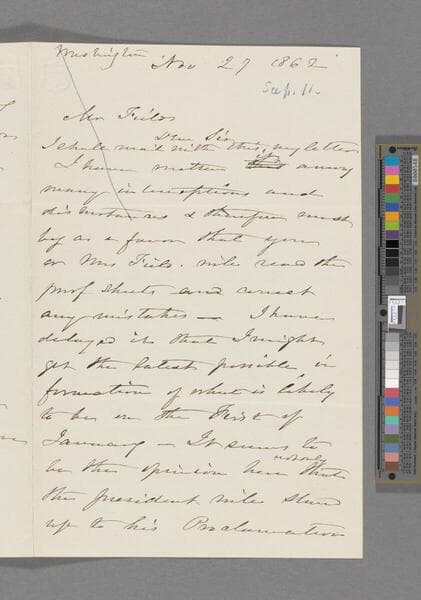 Washington
Nov 27 1862
Sup. 11.
Mr Fields
Dear Sir
I shall mail with this, my letter
I have written it among
many interruptions and
distractions & therefore must
beg as a favor that you
or Mrs Fields. will read the
proof sheets and correct
any mistakes — I have
delayed it that I might
get the latest possible in
formation of what is likely
to be on the First of
January — It seems to
be the opinion here not only that
the president will stand
up to his Proclamation